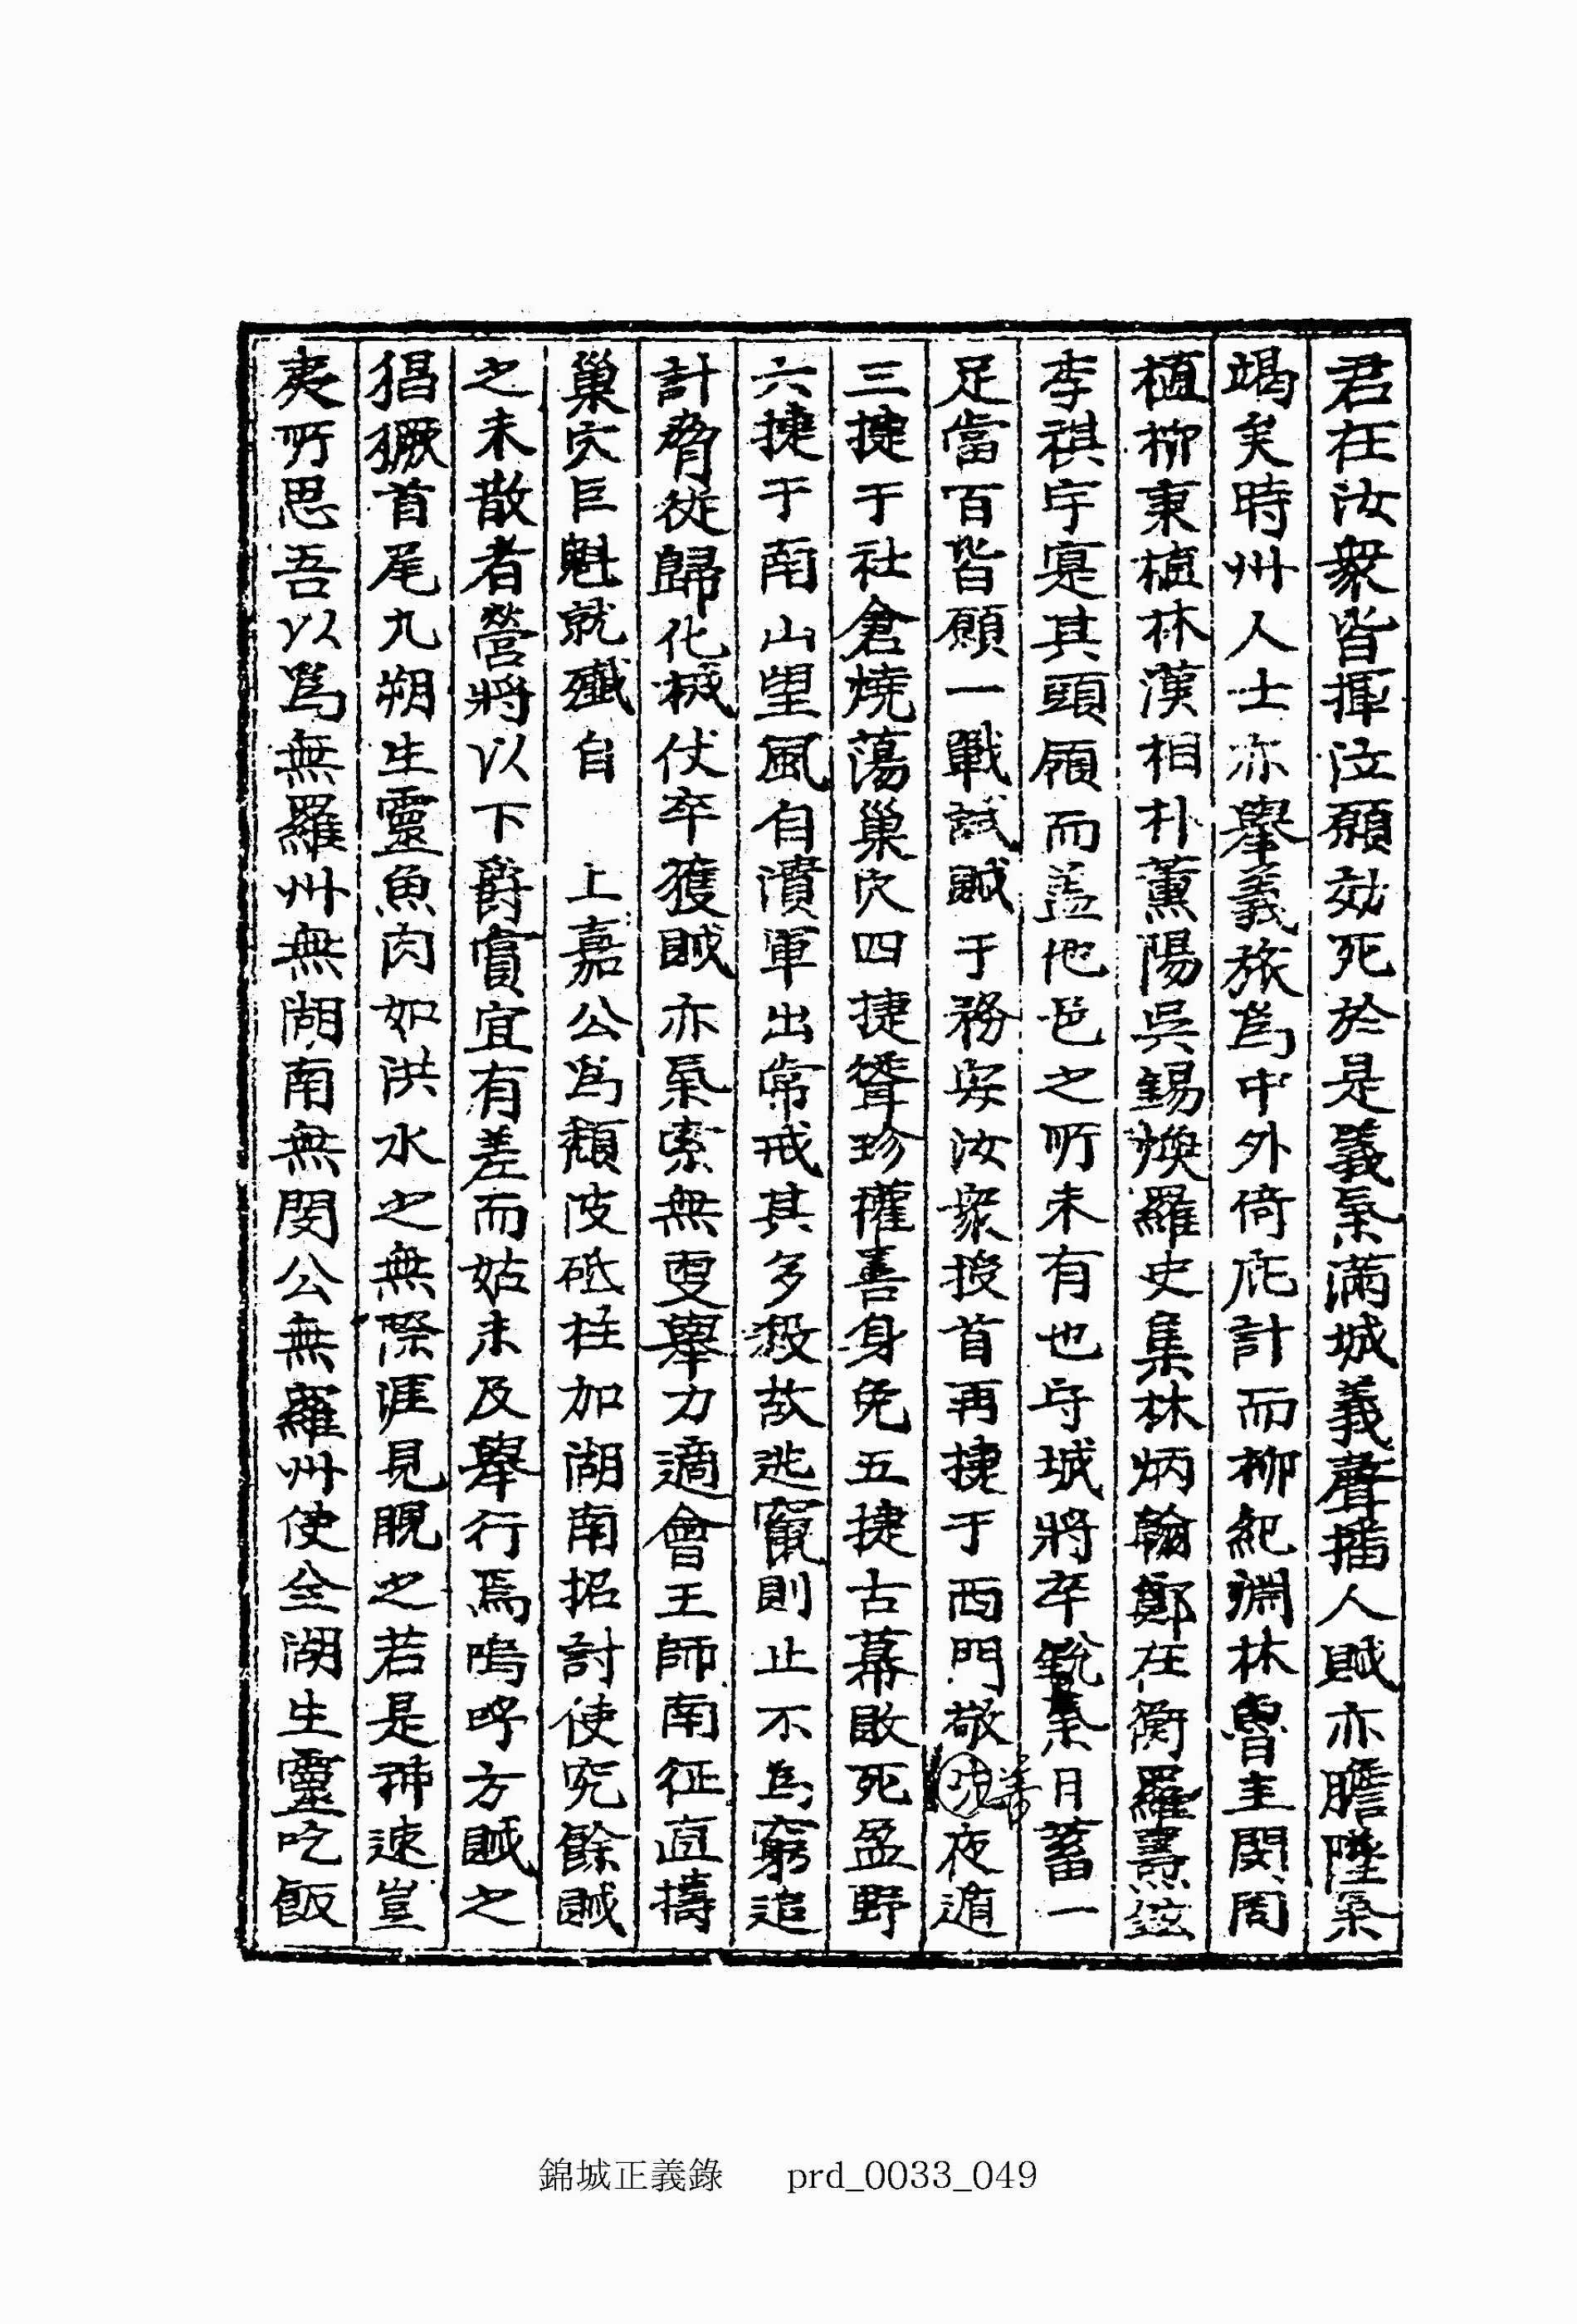 君在汝衆皆揮泣願效死於是義氣滿城義聲播人賊亦膽墜氣
竭矣時州人士亦擧義旅爲中外倚庇計而柳紀淵林魯圭閔周
植柳東植林漢相朴薰陽吳錫煥羅史集林炳翰鄭在衡羅燾鉉
李祺宇寔其頭領而盖他邑之所未有也守城將卒銳氣月蓄一
足當百皆願一戰試賊于務安汝衆授首再捷于西門敬明夜遁
三捷于社倉燒蕩巢穴四捷聳珍權善身免五捷古幕敗死盈野
六捷于南山望風自潰軍出常戒其多殺故逃竄則止不爲窮追
計脅從歸化械仗卒獲賊亦氣索無更擧力適會王師南征直擣
巢穴巨魁就殲自 上嘉公爲頹波砥柱加湖南招討使究餘賊
之未散者營將以下爵賞宜有差而姑未及擧行焉嗚呼方賊之
猖獗首尾九朔生靈魚肉如洪水之無際涯見睍之若是神速豈
夷所思吾以爲無羅州無湖南無閔公無羅州使全湖生靈吃飯
錦城正義錄 prd_0033_049